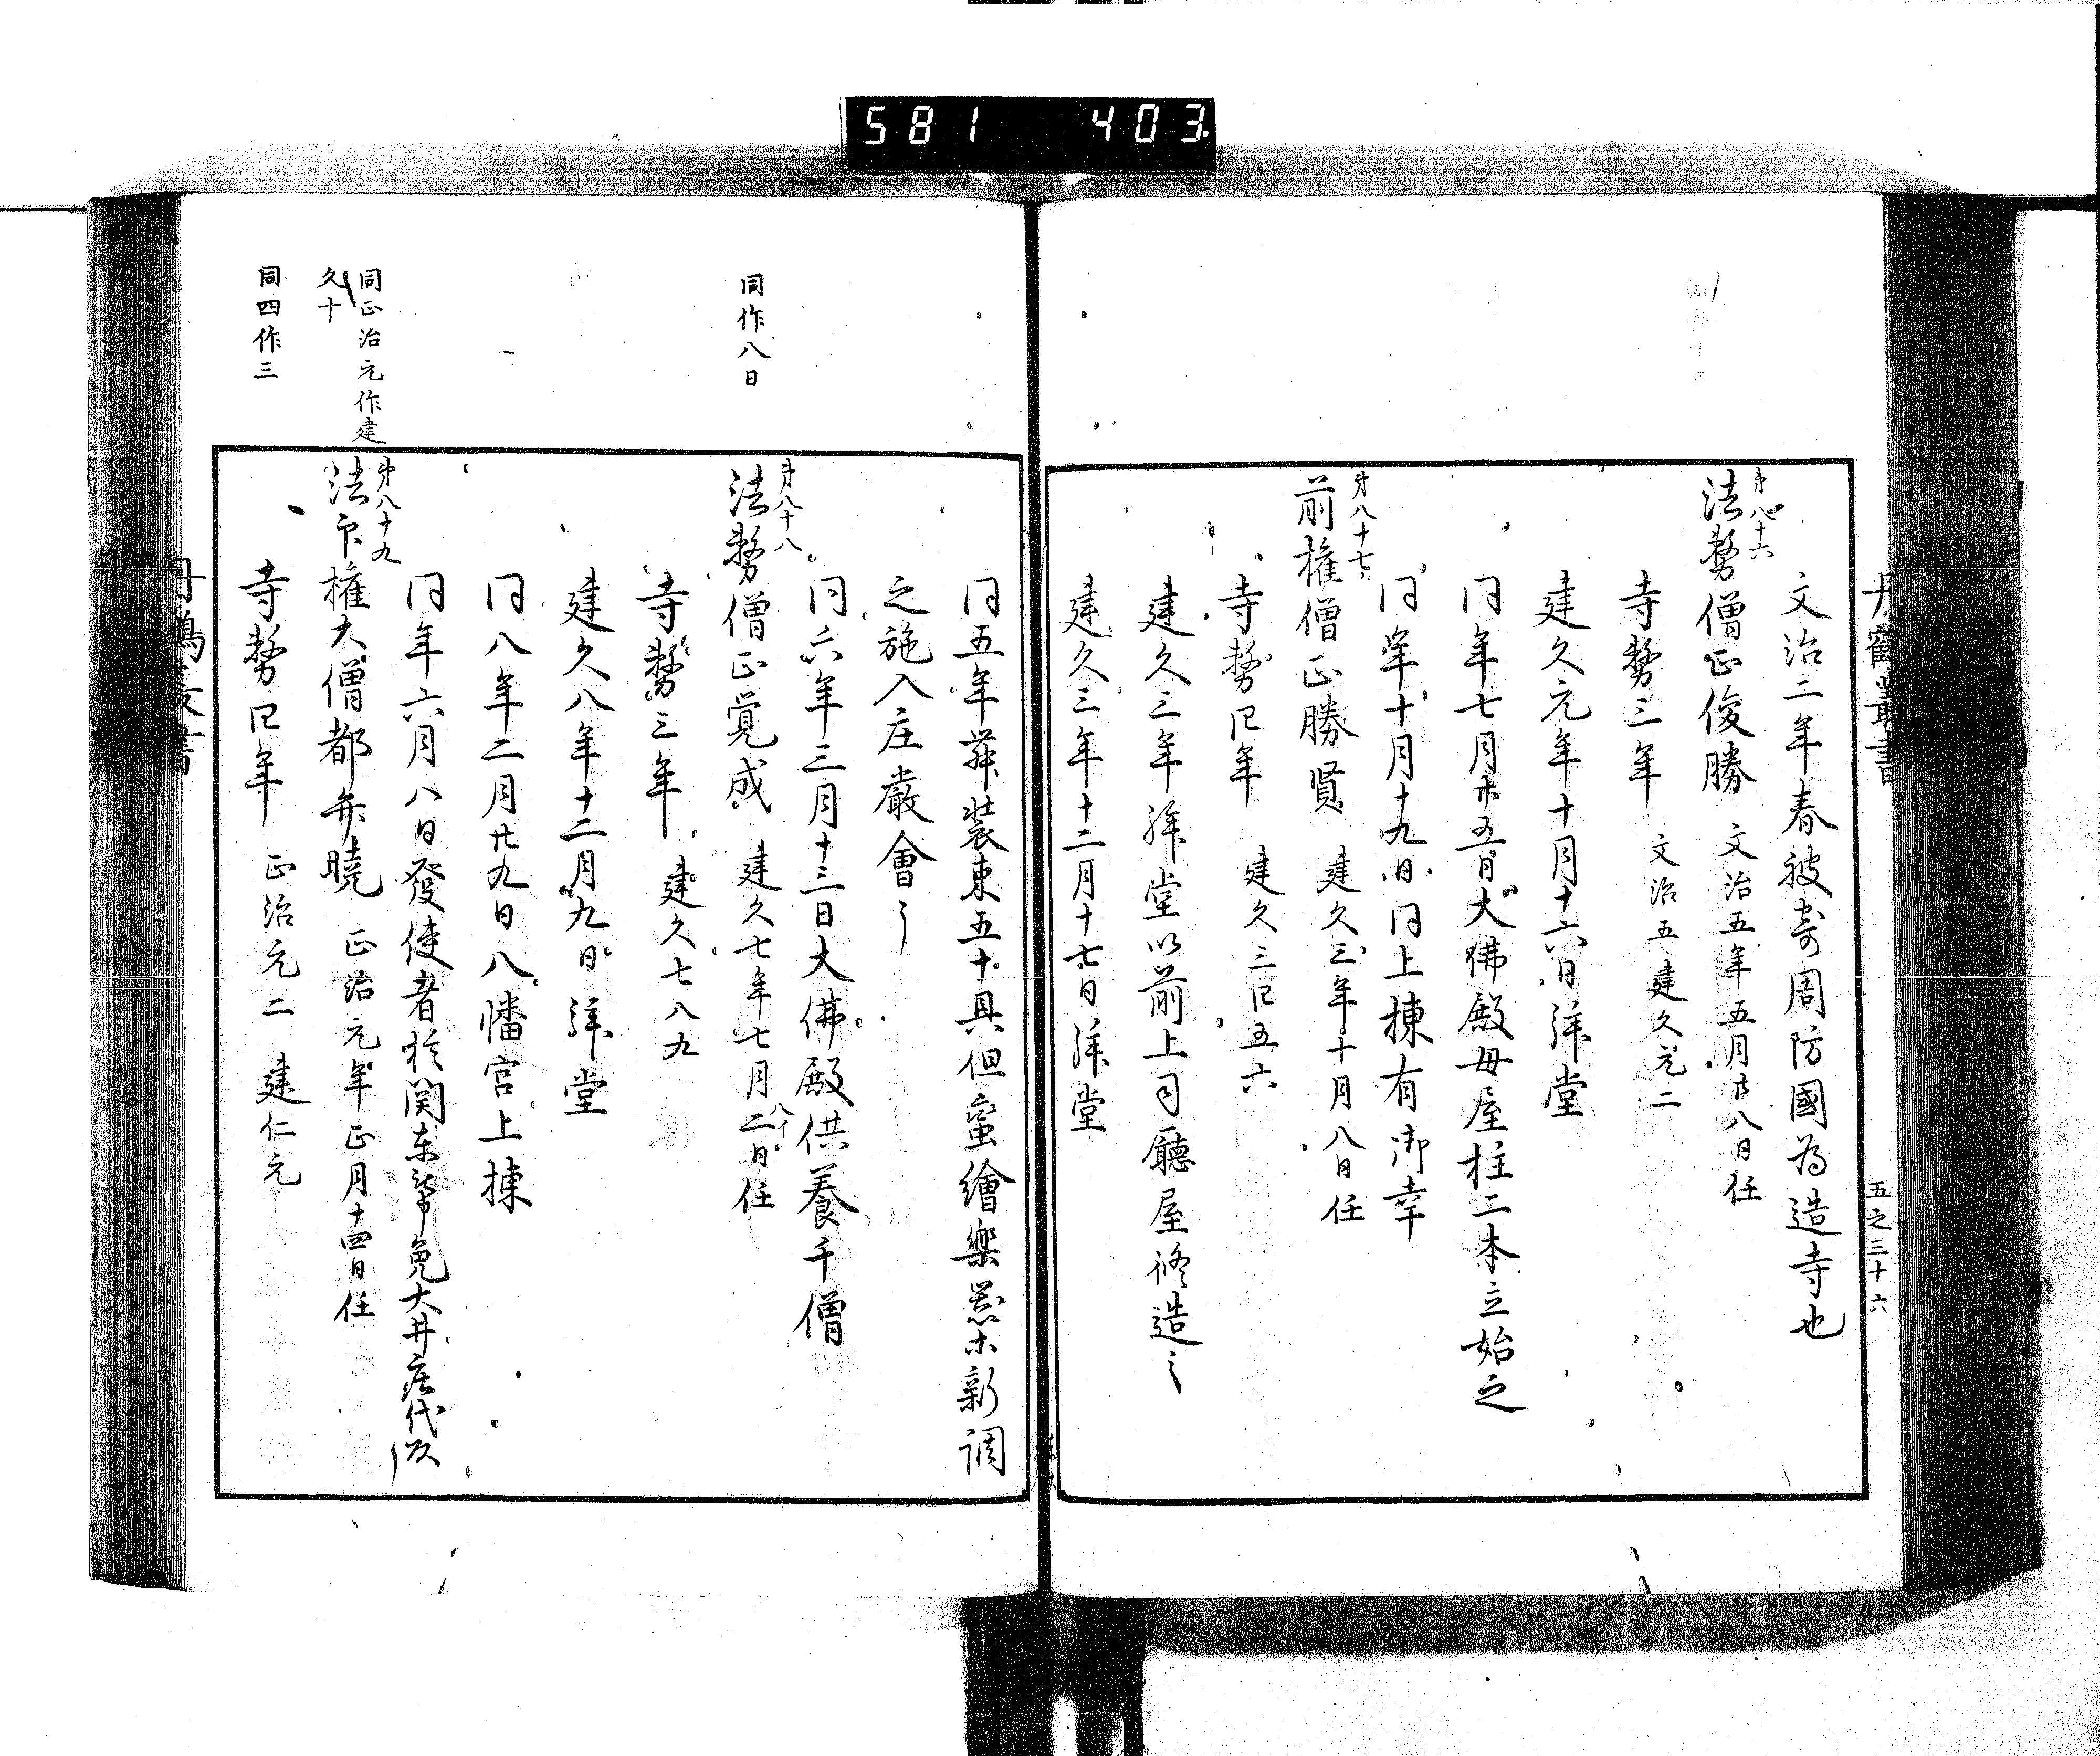 581 403
丹鶴叢書
五之三十六
文治二年春被寄周防國為造寺也
第八十六
法務僧正俊勝 文治五年五月廿八日任
寺務三年 文治五 建久元二
建久元年十月十六日拝堂
同年七月廿五日大佛殿母屋柱二本立始之
同年十月十九日同上棟有御幸
第八十七
前権僧正勝賢 建久三年十月八日任
寺務四年 建久三四五六
建久三年拝堂以前上司廳屋修造之
建久三年十二月十七日拝堂
同五年舞装束五十具但蛮繪樂器ホ新調
之施入庄嚴會之
同六年三月十三日大佛殿供養千僧
同作八日
第八十八
法務僧正覚成 建久七年七月二日任
八イ
寺務三年 建久七八九
建久八年十二月九日拝堂
同八年二月廿九日八幡宮上棟
同年六月八日發使者於関东幣免大井庄代以
同正治元作建
久十
第八十九
法印権大僧都弁暁 正治元年正月十四日任
同四作三
寺務四年 正治元二 建仁元